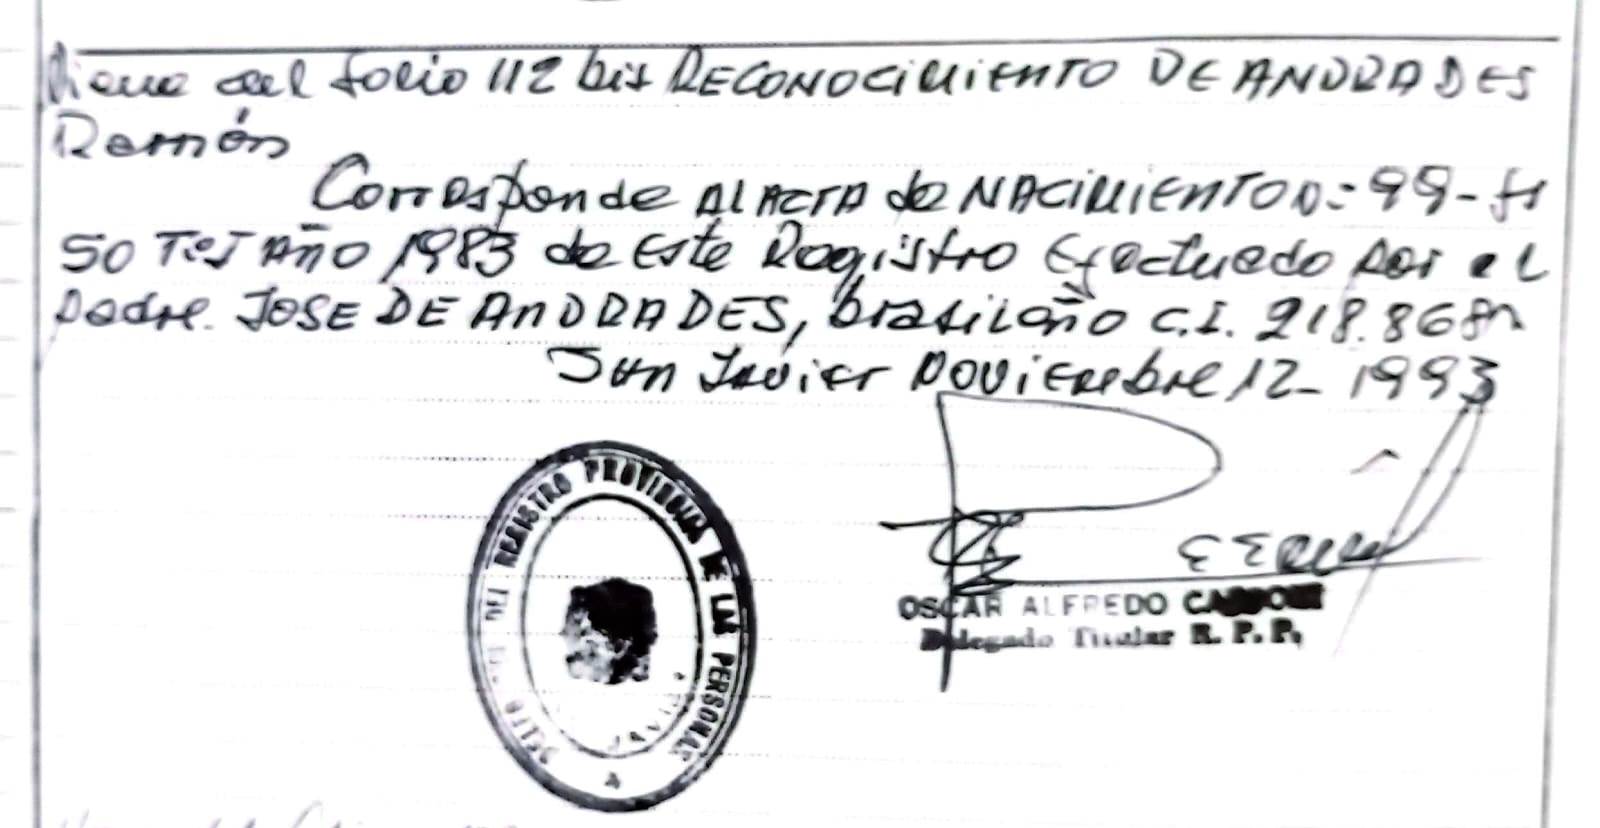 Viene del folio 112 bis RECONOCIMIENTO DE ANDRADES
Ramón
Corresponde AL ACTA de NACIMIENTO Nº 99 - fs
50 Tº I AÑO 1983 de Este Registro Efectuado por el
padre. JOSE DE ANDRADES, brasileño C.I. 218.868
San Javier Noviembre 12 - 1993
REGISTRO PROVINCIAL DE LAS PERSONAS
OSCAR ALFREDO
Delegado Titular R. P. P.